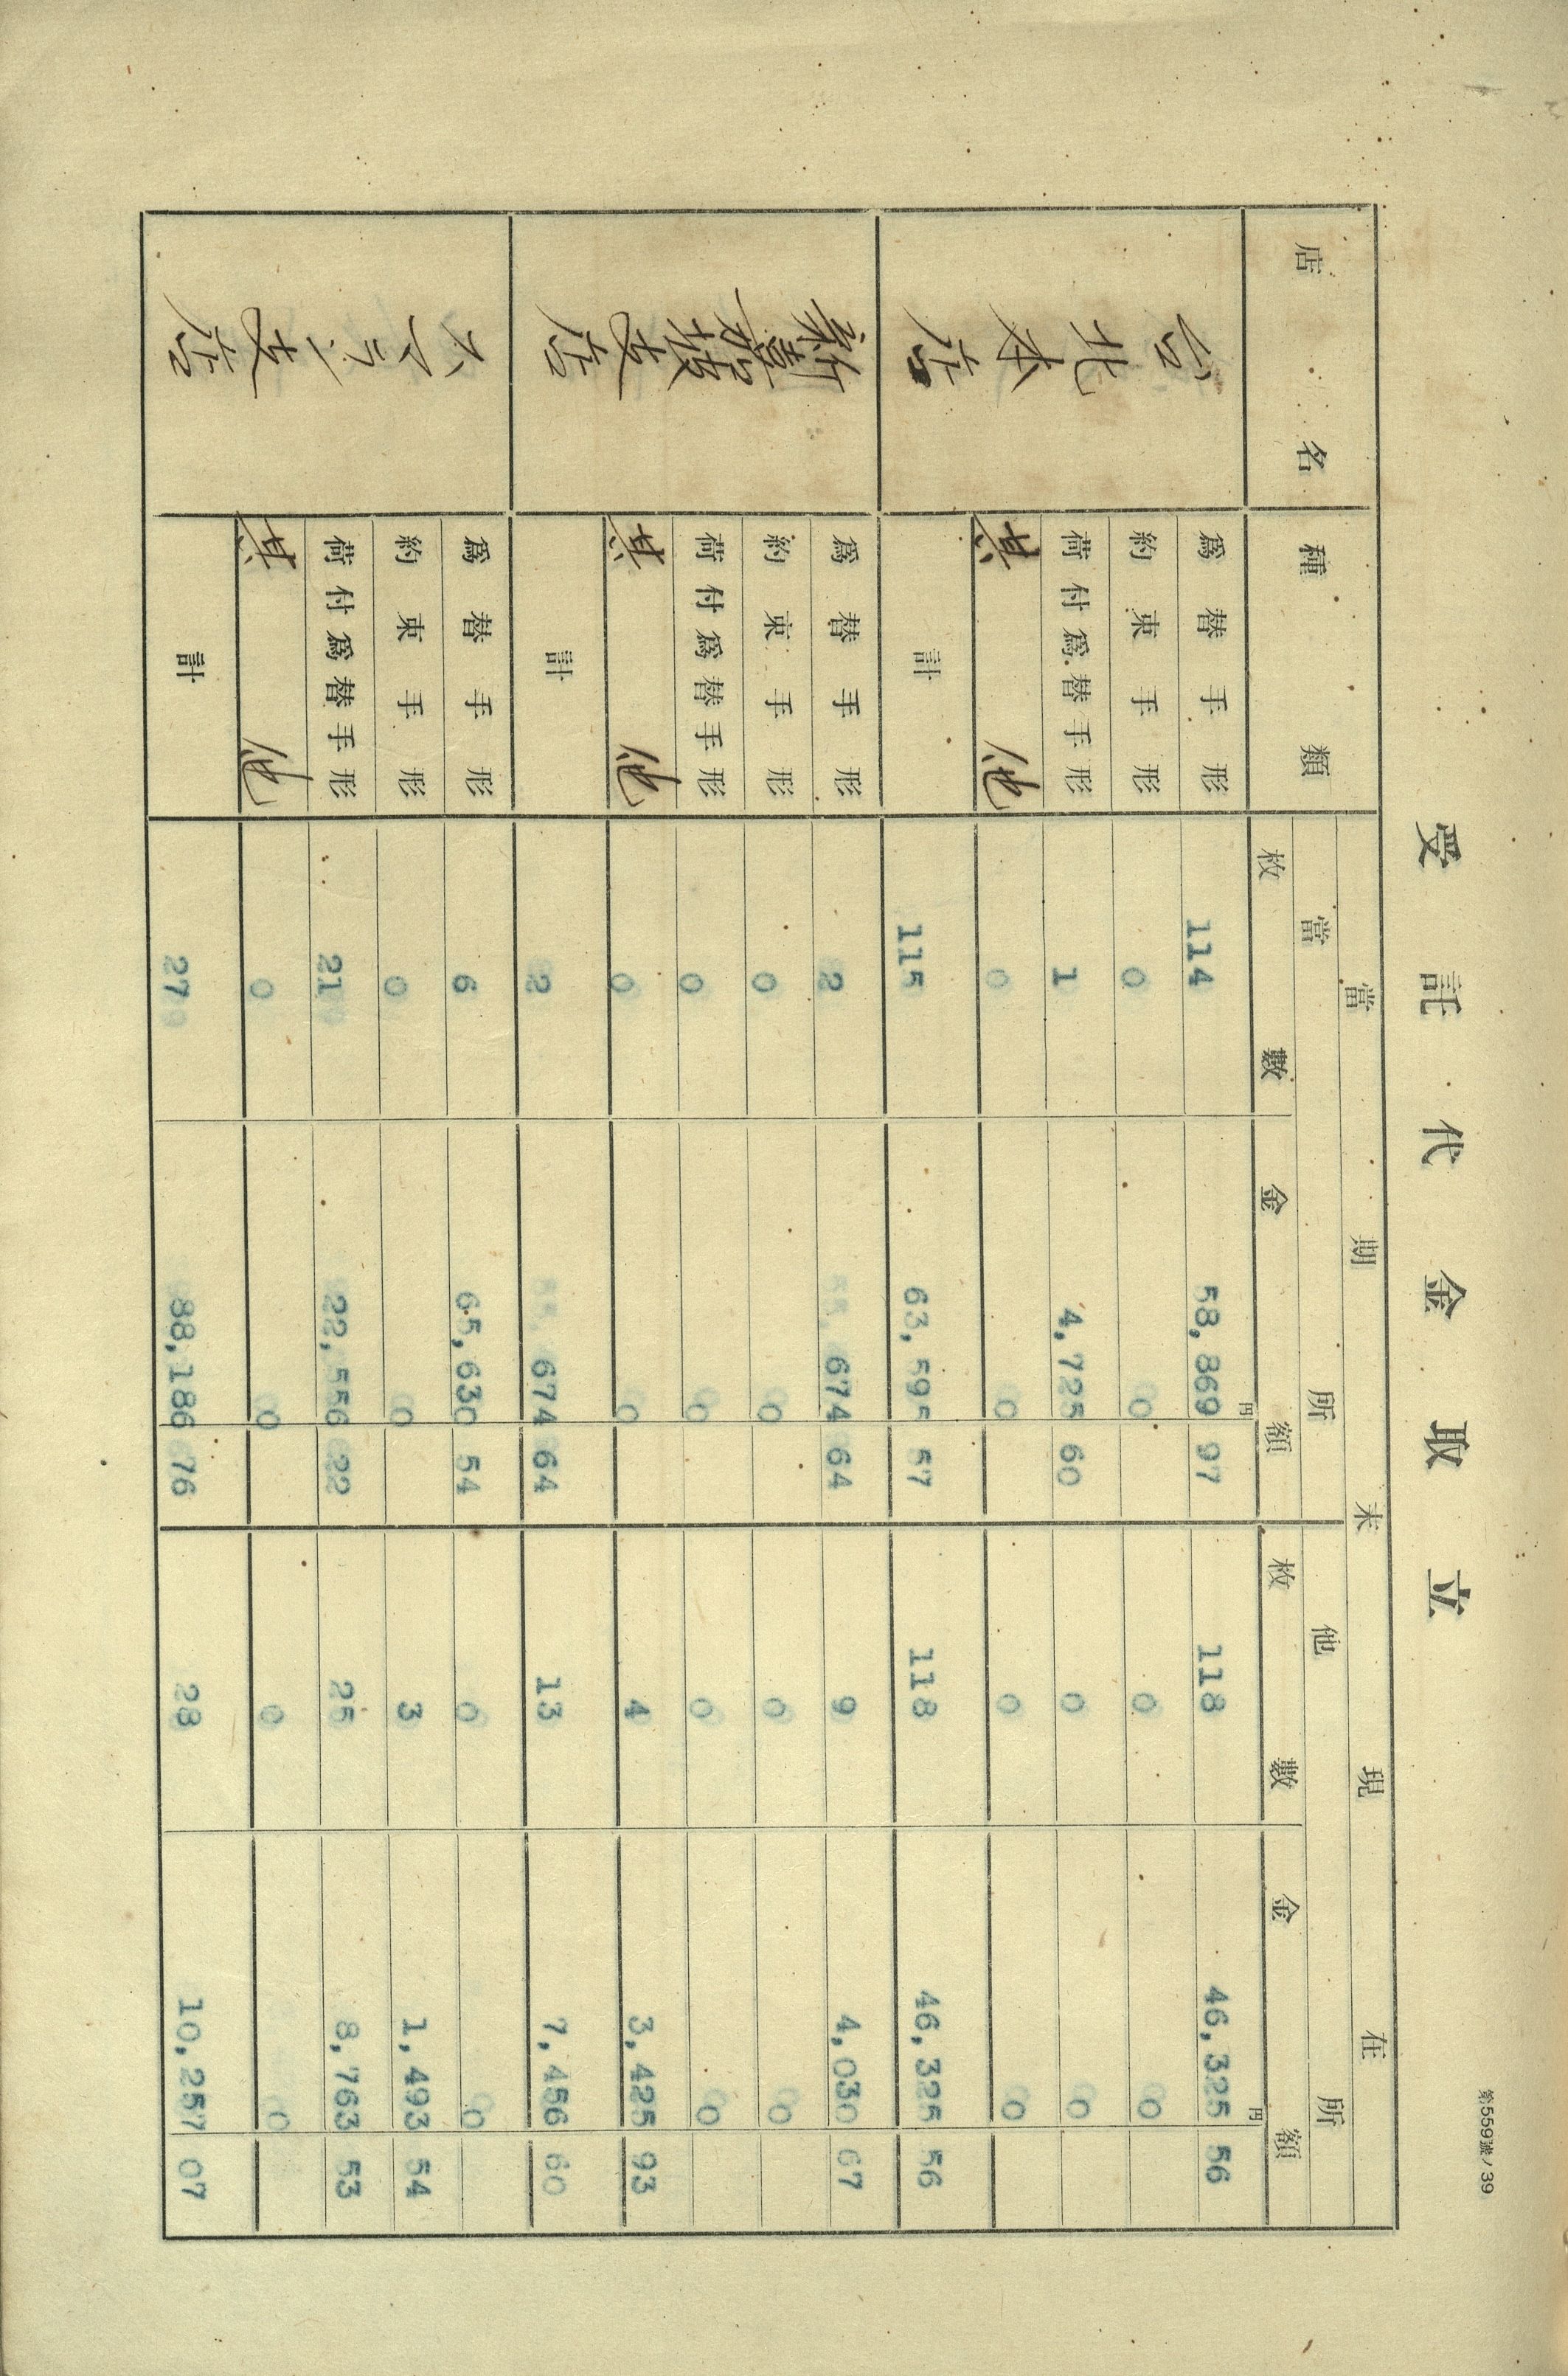 第559號ノ39
受託代金取立
店名 種類 當期末現在
當所 他所
枚數 金額 枚數 金額
円 円
台北本店 爲替手形 114 58,869 97 118 46,325 56
約束手形 0 0 0 0
荷付爲替手形 1 4,725 60 0 0
其他 0 0 0 0
計 115 63,595 57 118 46,325 56
新嘉坡支店 爲替手形 2 674 64 9 4,030 67
約束手形 0 0 0 0
荷付爲替手形 0 0 0 0
其他 0 0 4 3,425 93
計 2 674 64 13 7,456 60
スマラン支店 爲替手形 6 65,630 54 0 0
約束手形 0 0 3 1,493 54
荷付爲替手形 21 22,556 22 25 8,763 53
其他 0 0 0 0
計 27 88,186 76 28 10,257 07